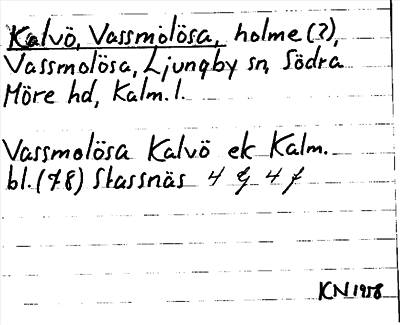 Kalvö, Vassmolösa, holme (?),
Vassmolösa, Ljungby sn, Södra
Möre hd, Kalm. l.
Vassmolösa Kalvö ek Kalm.
bl. (78) Stassnäs 4 g 4 f
KN 1958